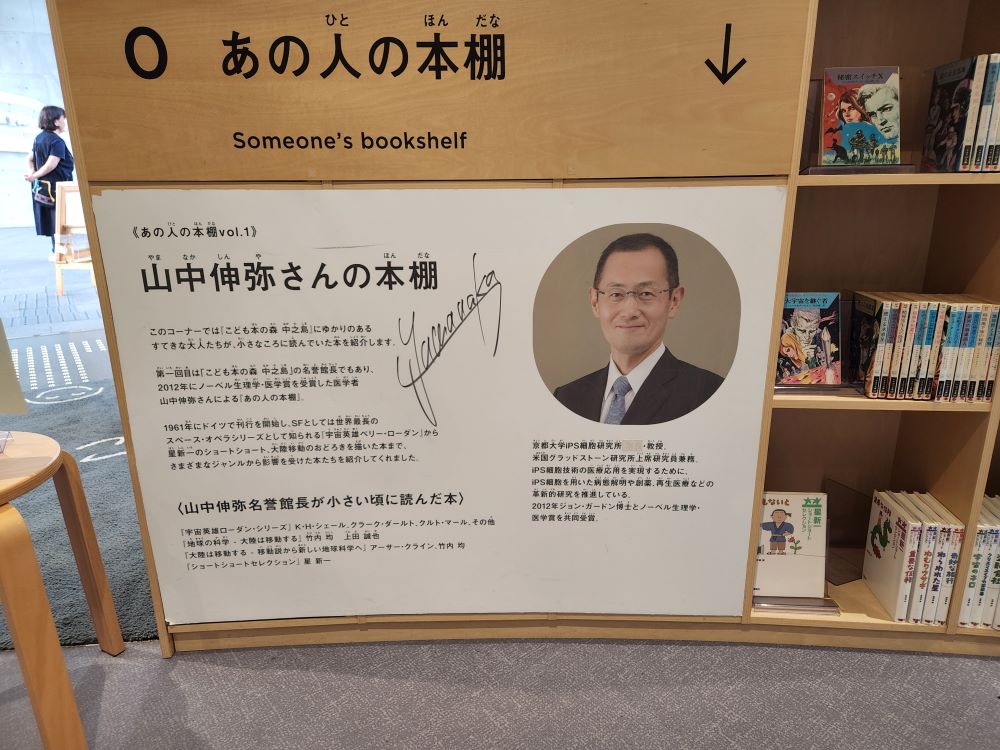 O あの人の本棚 ↓
Someone's bookshelf
《あの人の本棚vol.1》
山中伸弥さんの本棚
Yamanaka
このコーナーでは『こども本の森 中之島』にゆかりのある
すてきな大人たちが、小さなころに読んでいた本を紹介します。
第一回目は『こども本の森 中之島』の名誉館長でもあり、
2012年にノーベル生理学・医学賞を受賞した医学者
山中伸弥さんによる『あの人の本棚』。
1961年にドイツで刊行を開始し、SFとしては世界最長の
スペース・オペラシリーズとして知られる『宇宙英雄ペリー・ローダン』から
星新一のショートショート、大陸移動のおどろきを描いた本まで、
さまざまなジャンルから影響を受けた本たちを紹介してくれました。
〈山中伸弥名誉館長が小さい頃に読んだ本〉
『宇宙英雄ローダン・シリーズ』 K・H・シェール、クラーク・ダールト、クルト・マール、その他
『地球の科学 - 大陸は移動する』 竹内 均 上田 誠也
『大陸は移動する - 移動説から新しい地球科学へ』 アーサー・クライン、竹内 均
『ショートショートセレクション』 星 新一
京都大学iPS細胞研究所 ・教授。
米国グラッドストーン研究所上席研究員兼務。
iPS細胞技術の医療応用を実現するために、
iPS細胞を用いた病態解明や創薬、再生医療などの
革新的研究を推進している。
2012年ジョン・ガードン博士とノーベル生理学・
医学賞を共同受賞。
秘密スイッチX
大宇宙を継ぐ者
星新一
ショートショート
セレクション
ねむりウサギ
ねらわれた星
奇妙な旅行